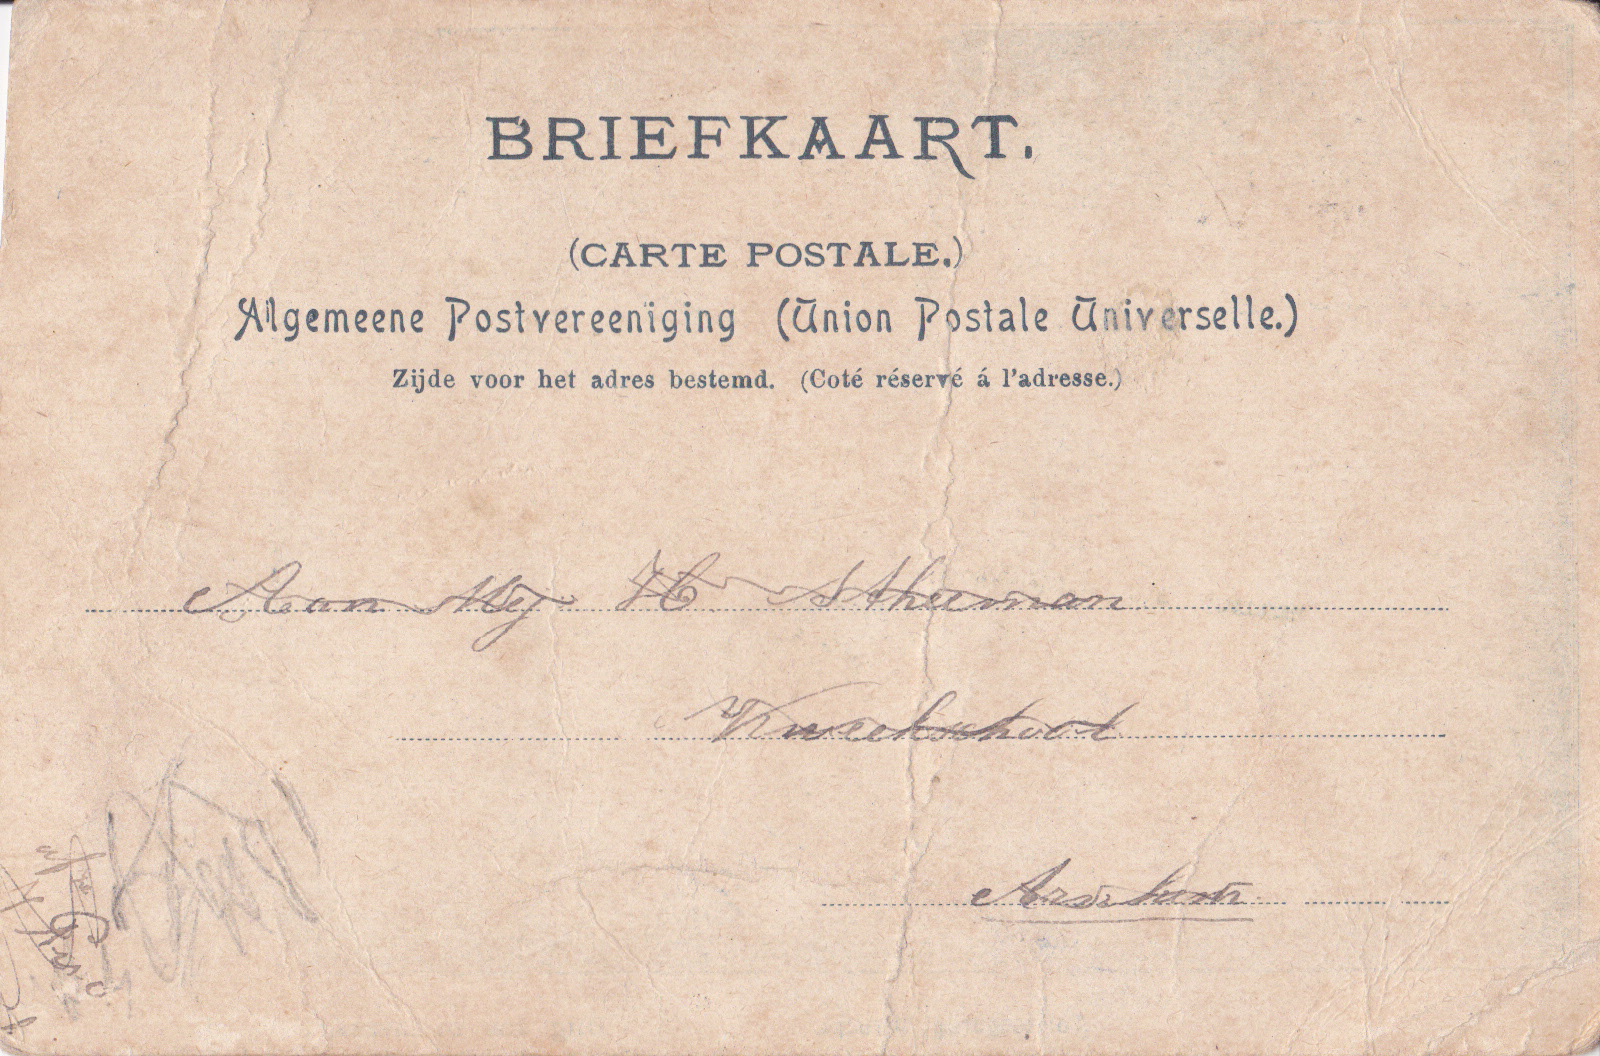 BRIEFKAART.
(CARTE POSTALE.)
Algemeene Postvereeniging (Union Postale Universelle.)
Zijde voor het adres bestemd. (Coté réservé á l'adresse.)
Aan Mej. H
Kweekschool
Arnhem